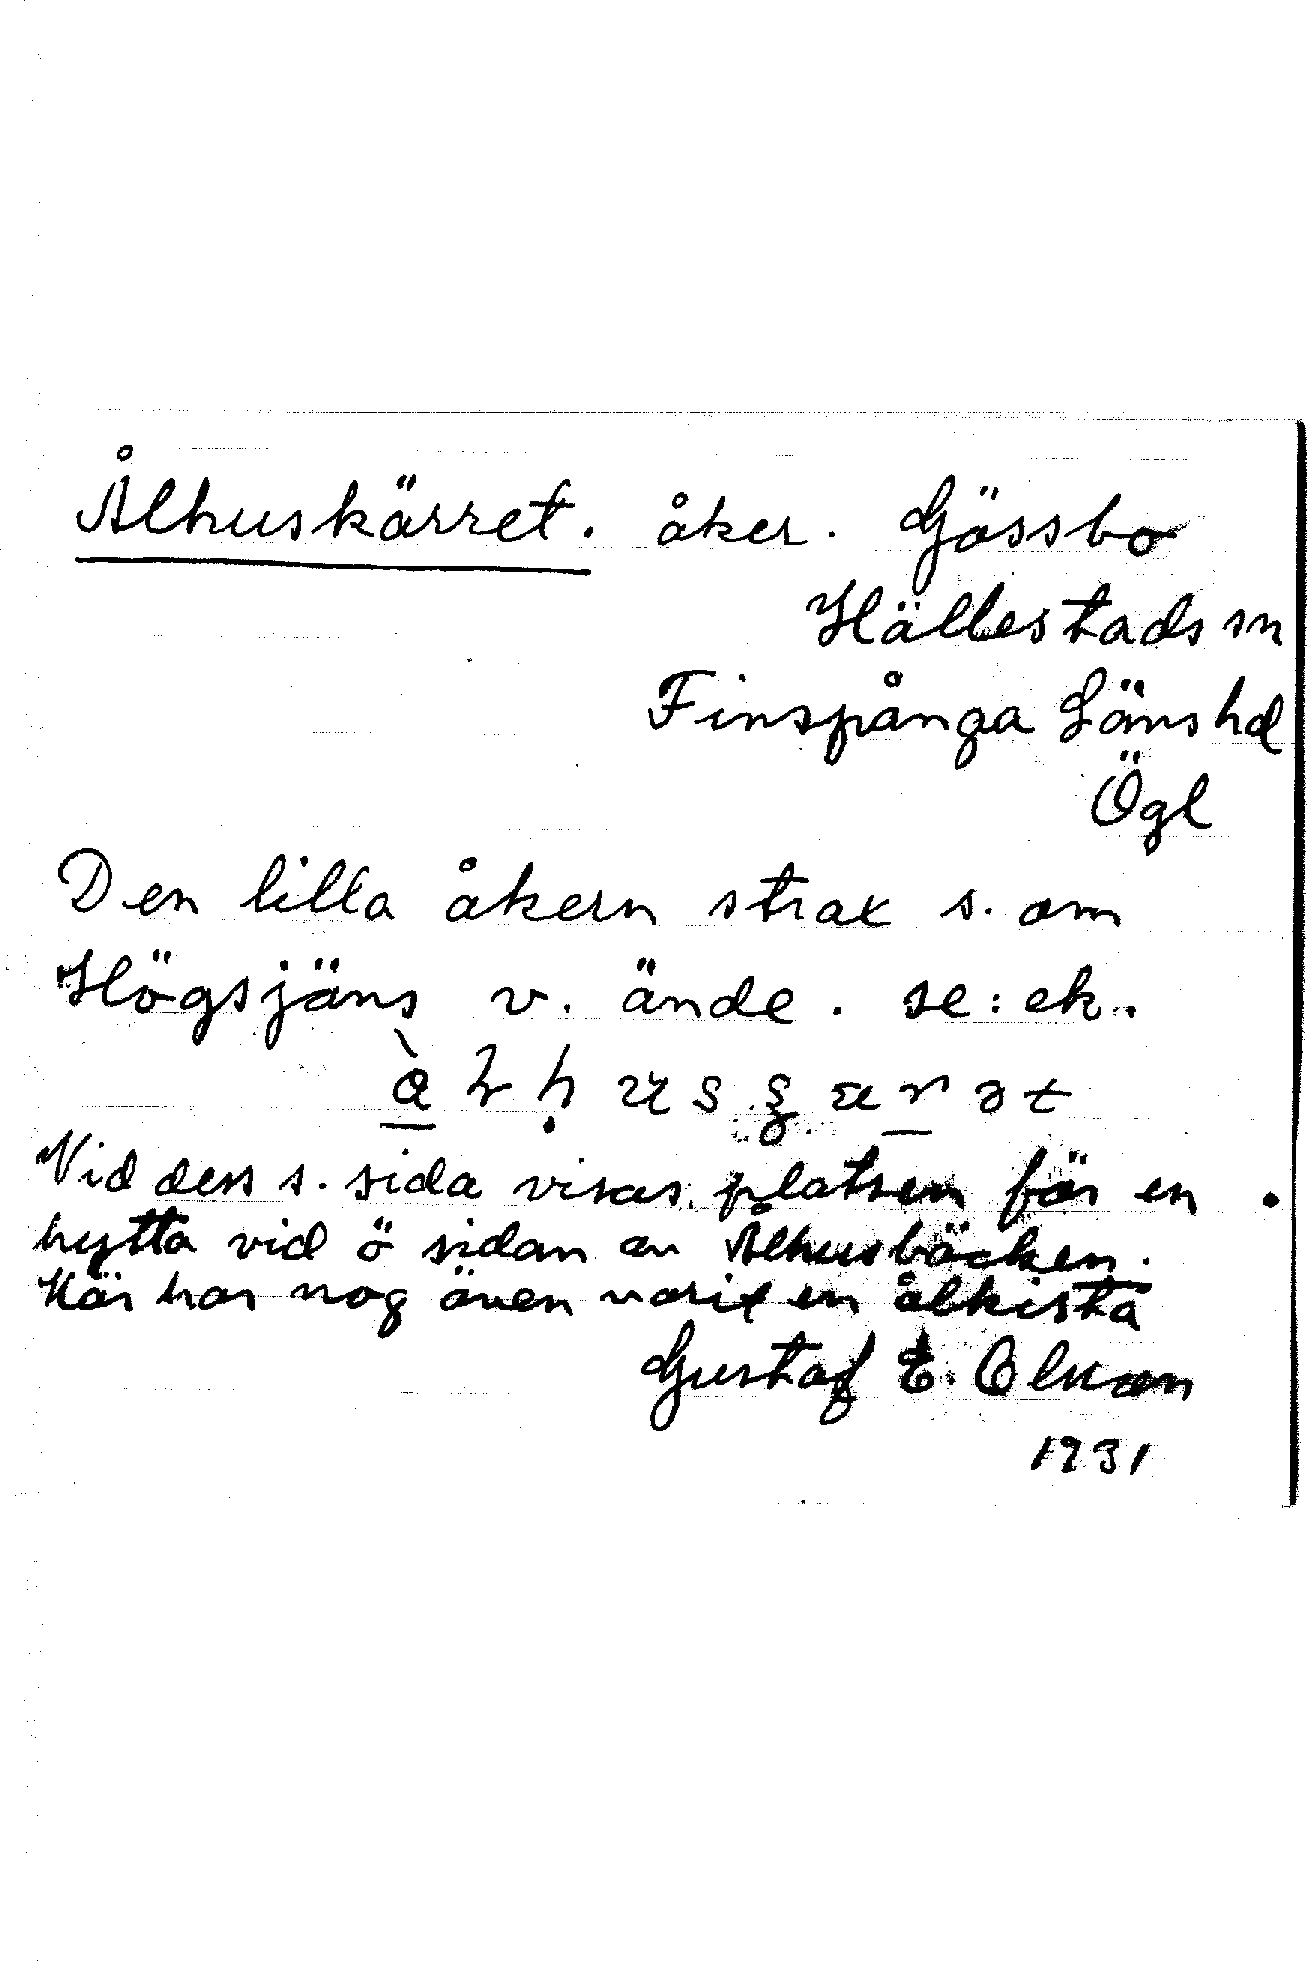 Ålhuskärret. åker. Gössbo
Hällestads sn
Finspånga Läns hd
Ögl
Den lilla åkern strax s. om
Högsjöns v. ände. se: ek..
Vid dess s. sida visas platsen för en
hytta vid ö sidan av Ålhusbäcken.
Här har nog även varit en ålkista
Gustaf E. Olsson
1931